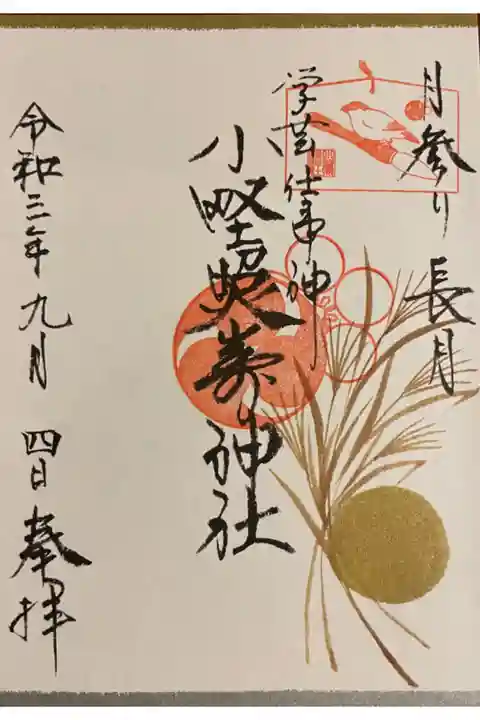 月参り 長月
学芸 仕事神
小野照崎神社
令和三年 九月 四日 奉拝